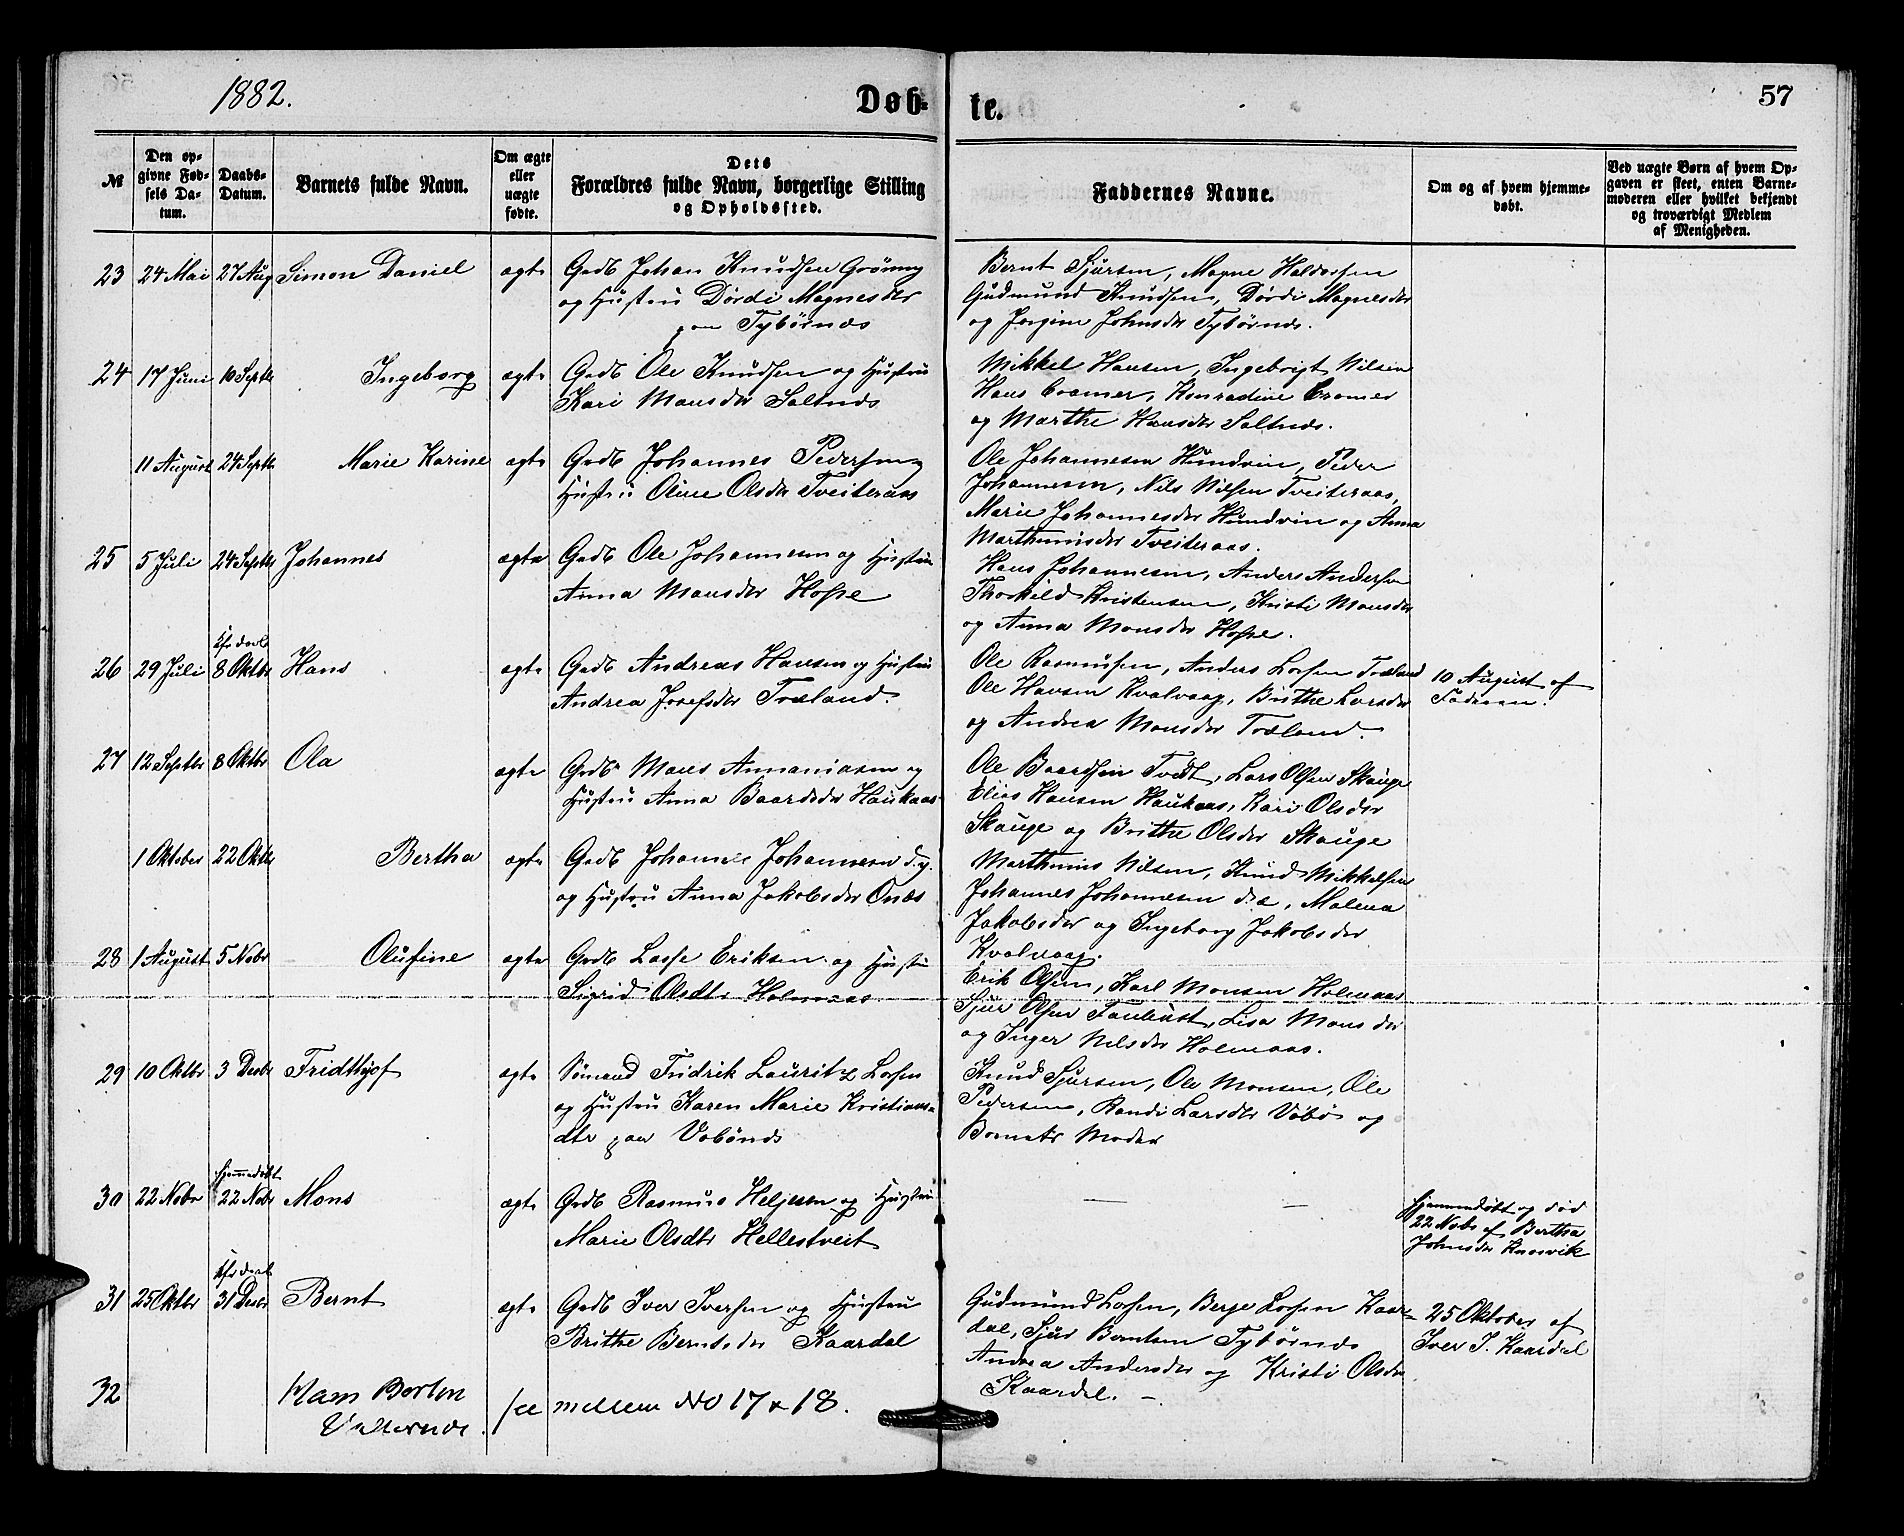 1882.
Døb-
te.
57
№
Den op-
givne Fød-
sels Da-
tum.
Daabs-
Datum.
Barnets fulde Navn.
Om ægte
eller
uægte
fødte.
Dets
Forældres fulde Navn, borgerlige Stilling
og Opholdssted.
Faddernes Navne.
Om og af hvem hjemme-
døbt.
Ved uægte Børn af hvem Op-
gaven er skeet, enten Barne-
moderen eller hvilket bekjendt
og troværdigt Medlem
af Menigheden.
23 24 Mai 27 Aug Simon Daniel ægte Gadb Johan Knudsen Grønning
og Hustru Dørdi Magnesdtr
paa Tybørnæs
Bernt Sjursen, Magne Haldorsen
Gudmund Knudsen, Dørdi Magnesdtr
og Jorgine Johnsdtr Tybørnæs.
24 17 Juni 10 Septbr Ingeborg ægte Gadb Ole Knudsen og Hustru
Kari Monsdtr Saltnæs
Mikkel Hansen, Ingebrigt Nilsen
Hans Cramer, Konradine Cramer
og Marthe Hansdtr Saltnæs.
11 August 24 Septbr Marie Karine ægte Gadb Johannes Pedersen og
Hustru Oline Olsdtr Tveiteraas
Ole Johannesen Hundvin, Peder
Johannesen, Nils Nilsen Tveiteraas,
Marie Johannesdtr Hundvin og Anna
Marthinusdtr Tveiteraas.
25 5 Juli 24 Septbr Johannes ægte Gadb Ole Johannesen og Hustru
Anna Monsdtr Hope
Hans Johannesen, Anders Andersen
Thorkild Kristensen, Kristi Monsdtr
og Anna Monsdtr Hope.
26 29 Juli 8 Oktbr Hans ægte Gadb Andreas Hansen og Hustru
Andrea Josefsdtr Træland.
Ole Rasmussen, Anders Larsen Træland
Ole Hansen Kvalvaag, Brithe Larsdtr
og Andrea Monsdtr Træland.
10 August af
Faderen.
27 12 Septbr 8 Oktbr Ola ægte Gadb Mons Annaniasen og
Hustru Anna Baardsdtr Haukaas
Ole Baardsen Tvedt, Lars Olsen Skauge
Elias Hansen Haukaas, Kari Olsdtr
Skauge og Brithe Olsdtr Skauge
1 Oktober 22 Oktbr Bertha ægte Gadb Johannes Johannesen d.y.
og Hustru Anna Jakobsdtr Onæs
Marthinus Nilsen, Knud Mikkelsen
Johannes Johannesen d.æ, Malena
Jakobsdtr og Ingeborg Jakobsdtr
Kvalvaag.
28 1 August 5 Nobr Olufine ægte Gadb Lasse Eriksen og Hustru
Sigrid Olsdtr Holmaas
Erik Olsen, Karl Monsen Holmaas
Sjur Olsen, Lisa Monsdtr
og Inger Nilsdtr Holmaas.
29 10 Oktbr 3 Decbr Fridthjof ægte Sømand Fridrik Lauritz Larsen
og Hustru Karen Marie Kristians-
dtr paa Vabønæs
Knud Sjursen, Ole Monsen, Ole
Pedersen, Randi Larsdtr Vabø og
Barnets Moder
30 22 Nobr Hjemmedøbt
22 Nobr Mons ægte Gadb Rasmus Heljesen og Hustru
Marie Olsdtr Hellestveit
— —
Hjemmedøbt og død
22 Nobr af Bertha
Johnsdtr Knarvik
31 25 Oktbr 31 Decbr Bernt ægte Gadb Iver Iversen og Hustru
Brithe Berntsdtr Kaardal
Gudmund Larsen, Berge Larsen Kaar-
dal, Sjur Berntsen Tybørnæs
Andrea Andersdtr og Kristi Olsdtr
Kaardal. —
25 Oktober af
Iver I. Kaardal
32
see mellem No 17 & 18.